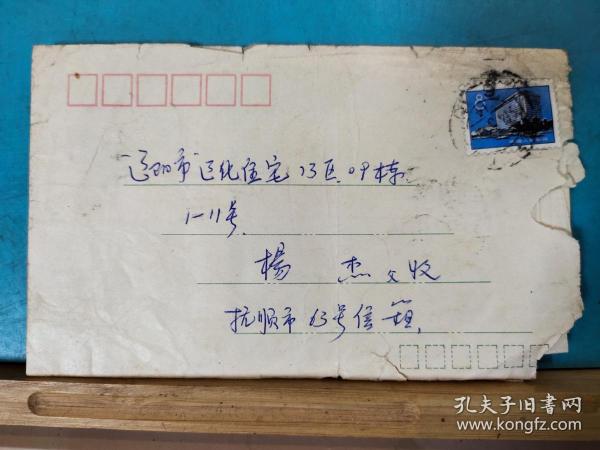 辽阳市辽化住宅13区09栋
1-11号
楊 杰 收
抚顺市 63号信箱
孔夫子旧书网
www.kongfz.com